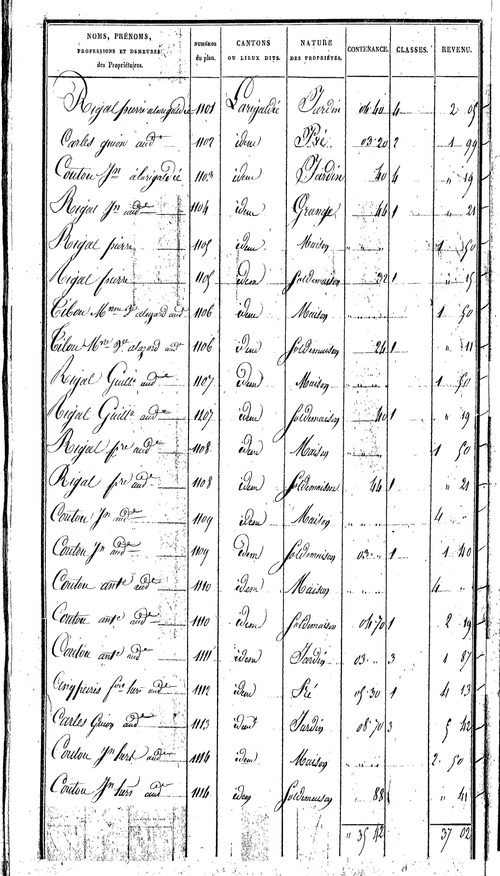 NOMS, PRÉNOMS, PROFESSIONS ET DEMEURES des Propriétaires. NUMÉROS du plan. CANTONS OU LIEUX DITS. NATURE DES PROPRIÉTÉS. CONTENANCE. CLASSES. REVENU.
Rigal pierre à larigaldié 1101 Larigaldié Jardin 04 40 4 2 05
Carles guion aud.e 1102 idem Pré 03 20 2 1 99
Couton Jn à larigaldié 1103 idem Jardin 40 4 " 19
Rigal Jn aud.e 1104 idem Grange 44 1 " 21
Rigal pierre 1105 idem Maison 1 50
Rigal pierre 1105 idem Soldemaison 32 1 " 15
1106 idem Maison 1 50
1106 idem Soldemaison 24 1 " 11
Rigal Guill.e aud.e 1107 idem Maison 1 50
Rigal Guill.e aud.e 1107 idem Soldemaison 40 1 " 19
Rigal pre aud.e 1108 idem Maison 1 50
Rigal pre aud.e 1108 idem Soldemaison 44 1 " 21
Couton Jn aud.e 1109 idem Maison 4
Couton Jn aud.e 1109 idem Soldemaison 03 1 1 40
Couton ant.e aud.e 1110 idem Maison 4
Couton ant.e aud.e 1110 idem Soldemaison 04 70 1 2 19
Couton ant.e aud.e 1111 idem Jardin 03 3 1 87
aud.e 1112 idem Pré 05 30 1 4 13
Carles Guion aud.e 1113 idem Jardin 08 70 3 5 42
Couton Jn hers aud.e 1114 idem Maison 2 50
Couton Jn hers aud.e 1114 idem Soldemaison 88 1 " 41
" 35 42 37 02